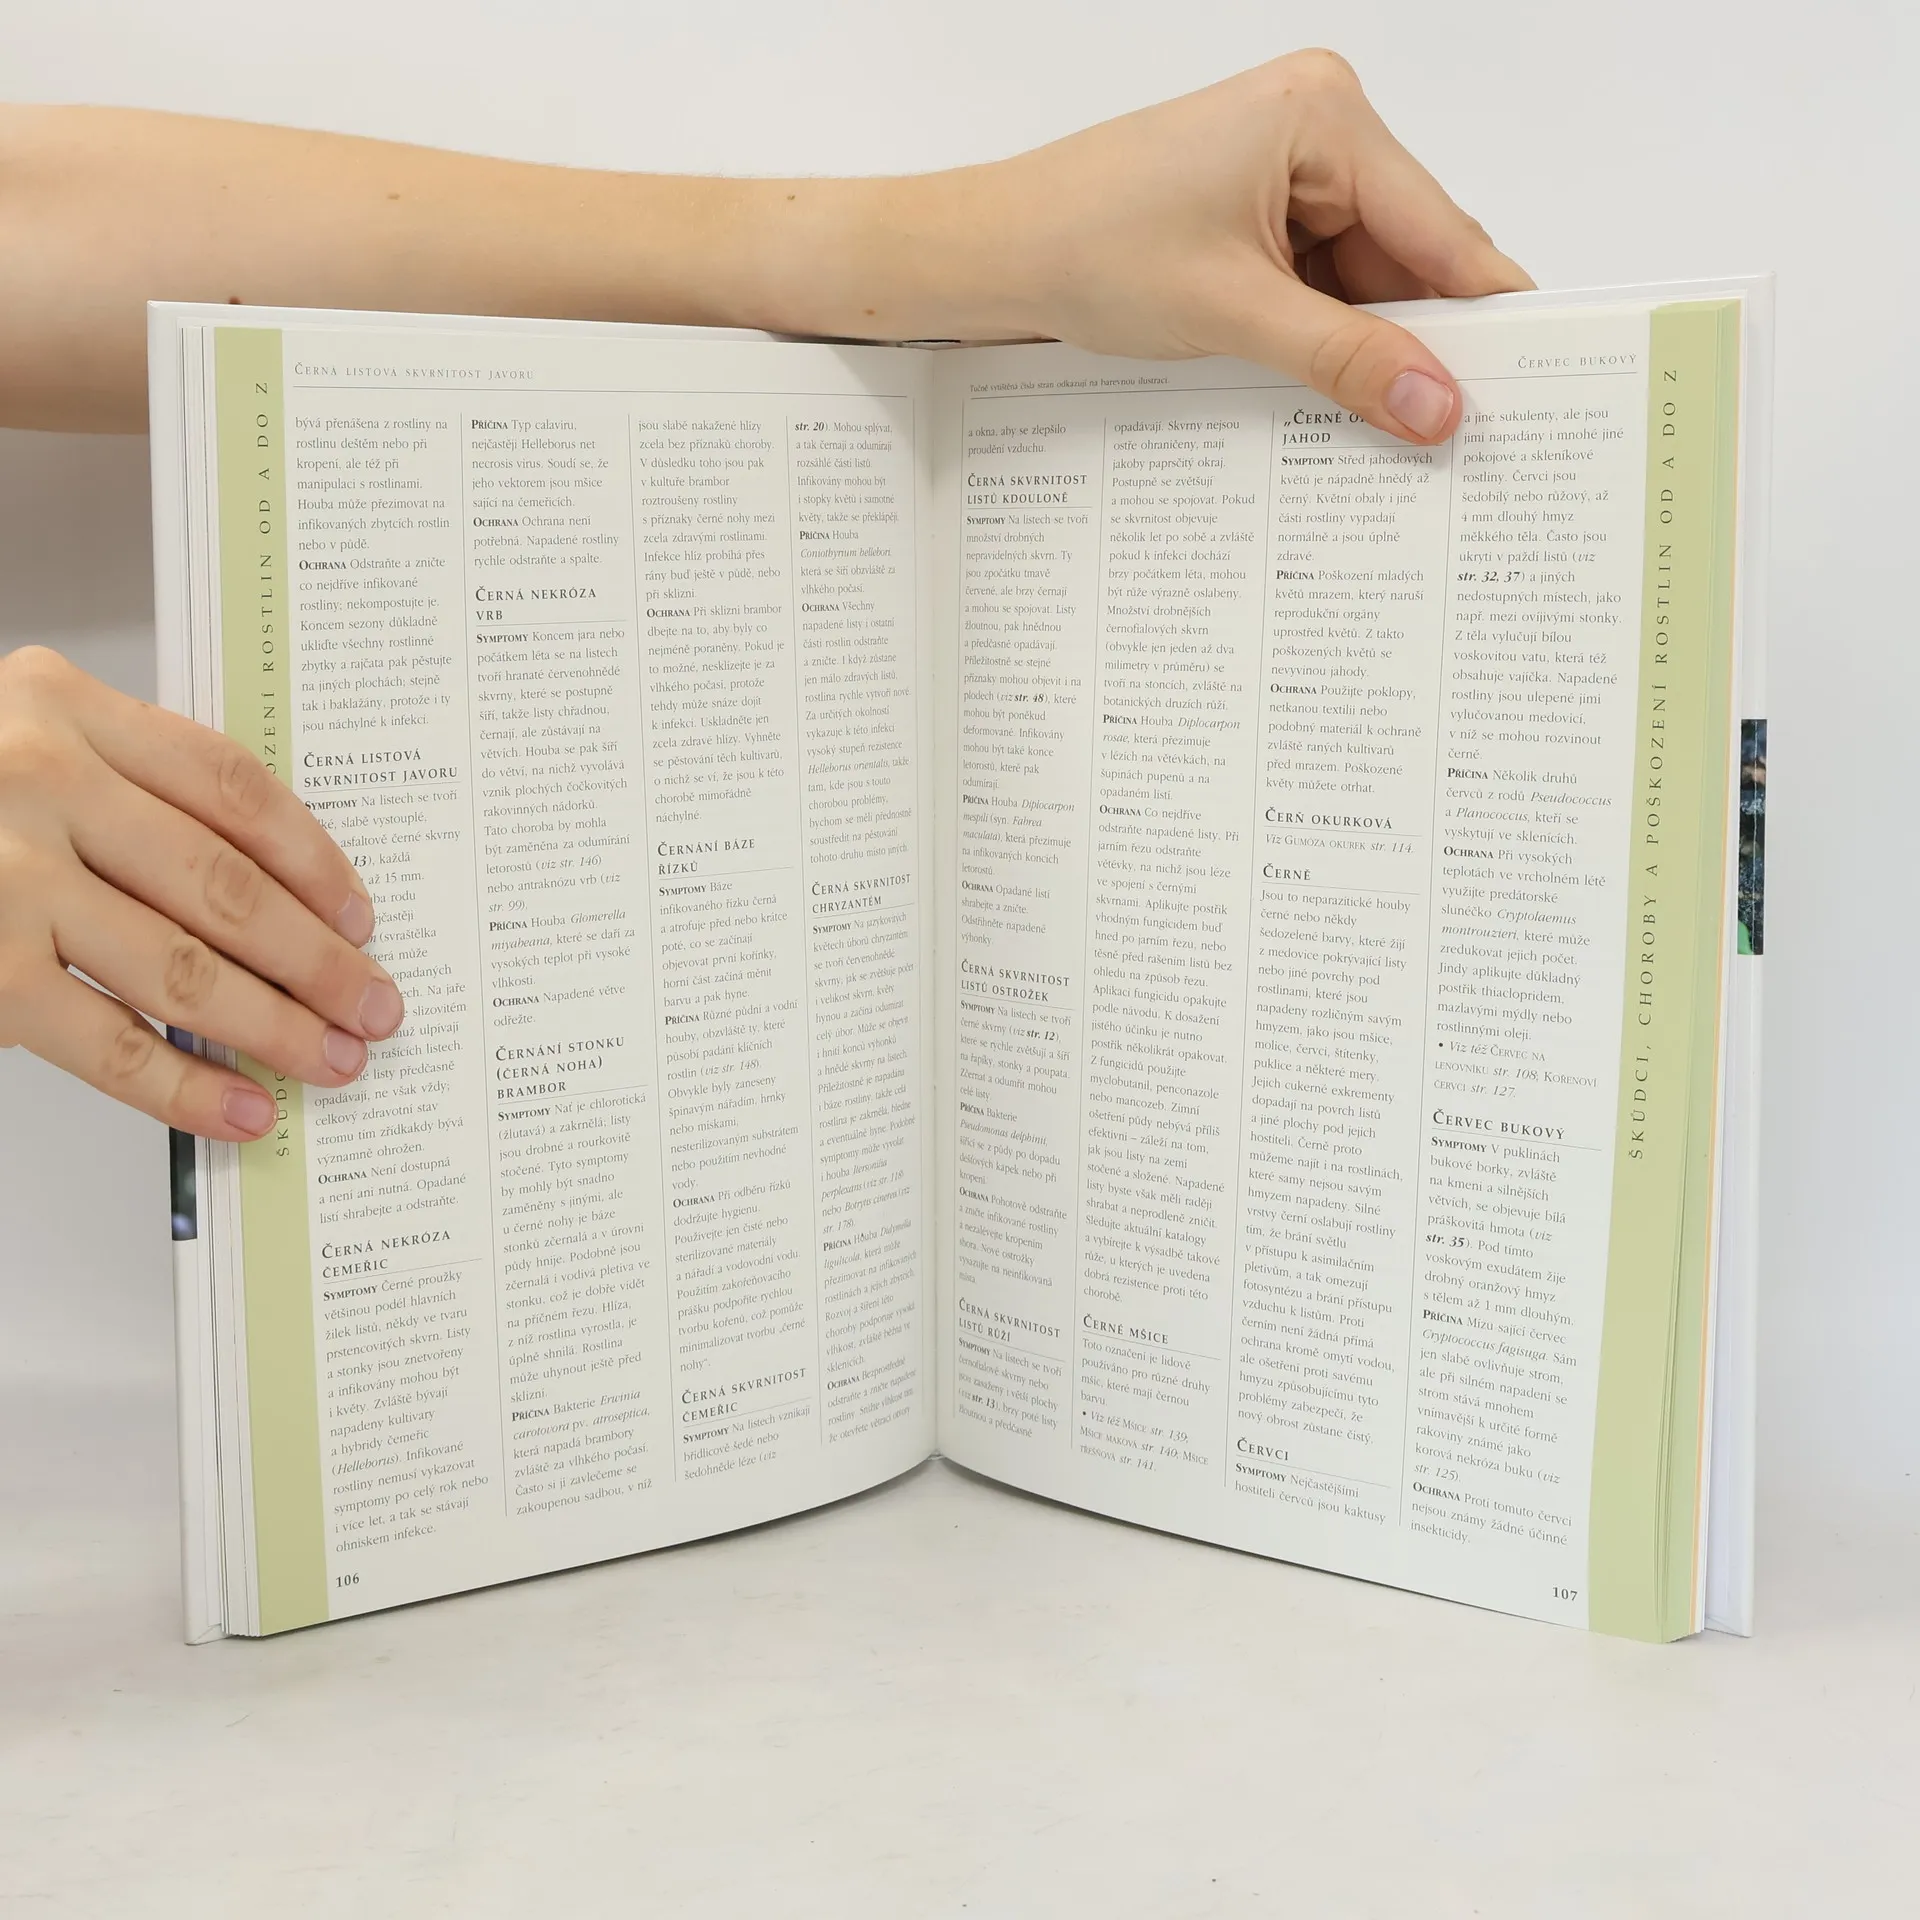 ČERNÁ LISTOVÁ SKVRNITOST JAVORU
bývá přenášena z rostliny na
rostlinu deštěm nebo při
kropení, ale též při
manipulaci s rostlinami.
Houba může přezimovat na
infikovaných zbytcích rostlin
nebo v půdě.
OCHRANA Odstraňte a zničte
co nejdříve infikované
rostliny; nekompostujte je.
Koncem sezony důkladně
ukliďte všechny rostlinné
zbytky a rajčata pak pěstujte
na jiných plochách; stejně
tak i baklažány, protože i ty
jsou náchylné k infekci.
ČERNÁ LISTOVÁ
SKVRNITOST JAVORU
SYMPTOMY Na listech se tvoří
slabě vystouplé,
asfaltově černé skvrny
13), každá
až 15 mm.
rodu
(svraštělka
může
opadaných
Na jaře
slizovitém
ulpívají
rašících listech.
listy předčasně
opadávají, ne však vždy;
celkový zdravotní stav
stromu tím zřídkakdy bývá
významně ohrožen.
OCHRANA Není dostupná
a není ani nutná. Opadané
listí shrabejte a odstraňte.
ČERNÁ NEKRÓZA
ČEMEŘIC
SYMPTOMY Černé proužky
většinou podél hlavních
žilek listů, někdy ve tvaru
prstencovitých skvrn. Listy
a stonky jsou znetvořeny
a infikovány mohou být
i květy. Zvláště bývají
napadeny kultivary
a hybridy čemeřic
(Helleborus). Infikované
rostliny nemusí vykazovat
symptomy po celý rok nebo
i více let, a tak se stávají
ohniskem infekce.
PŘÍČINA Typ calaviru,
nejčastěji Helleborus net
necrosis virus. Soudí se, že
jeho vektorem jsou mšice
sající na čemeřicích.
OCHRANA Ochrana není
potřebná. Napadené rostliny
rychle odstraňte a spalte.
ČERNÁ NEKRÓZA
VRB
SYMPTOMY Koncem jara nebo
počátkem léta se na listech
tvoří hranaté červenohnědé
skvrny, které se postupně
šíří, takže listy chřadnou,
černají, ale zůstávají na
větvích. Houba se pak šíří
do větví, na nichž vyvolává
vznik plochých čočkovitých
rakovinných nádorků.
Tato choroba by mohla
být zaměněna za odumírání
letorostů (viz str. 146)
nebo antraknózu vrb (viz
str. 99).
PŘÍČINA Houba Glomerella
miyabeana, které se daří za
vysokých teplot při vysoké
vlhkosti.
OCHRANA Napadené větve
odřežte.
ČERNÁNÍ STONKU
(ČERNÁ NOHA)
BRAMBOR
SYMPTOMY Nať je chlorotická
(žlutavá) a zakrnělá; listy
jsou drobné a rourkovitě
stočené. Tyto symptomy
by mohly být snadno
zaměněny s jinými, ale
u černé nohy je báze
stonků zčernalá a v úrovni
půdy hnije. Podobně jsou
zčernalá i vodivá pletiva ve
stonku, což je dobře vidět
na příčném řezu. Hlíza,
z níž rostlina vyrostla, je
úplně shnilá. Rostlina
může uhynout ještě před
sklizní.
PŘÍČINA Bakterie Erwinia
carotovora pv. atroseptica,
která napadá brambory
zvláště za vlhkého počasí.
Často si ji zavlečeme se
zakoupenou sadbou, v níž
jsou slabě nakažené hlízy
zcela bez příznaků choroby.
V důsledku toho jsou pak
v kultuře brambor
roztroušeny rostliny
s příznaky černé nohy mezi
zcela zdravými rostlinami.
Infekce hlíz probíhá přes
rány buď ještě v půdě, nebo
při sklizni.
OCHRANA Při sklizni brambor
dbejte na to, aby byly co
nejméně poraněny. Pokud je
to možné, nesklízejte je za
vlhkého počasí, protože
tehdy může snáze dojít
k infekci. Uskladněte jen
zcela zdravé hlízy. Vyhněte
se pěstování těch kultivarů,
o nichž se ví, že jsou k této
chorobě mimořádně
náchylné.
ČERNÁNÍ BÁZE
ŘÍZKŮ
SYMPTOMY Báze
infikovaného řízku černá
a atrofuje před nebo krátce
poté, co se začínají
objevovat první kořínky,
horní část začíná měnit
barvu a pak hyne.
PŘÍČINA Různé půdní a vodní
houby, obzvláště ty, které
působí padání klíčních
rostlin (viz str. 148).
Obvykle byly zaneseny
špinavým nářadím, hrnky
nebo miskami,
nesterilizovaným substrátem
nebo použitím nevhodné
vody.
OCHRANA Při odběru řízků
dodržujte hygienu.
Používejte jen čisté nebo
sterilizované materiály
a nářadí a vodovodní vodu.
Použitím zakořeňovacího
prášku podpoříte rychlou
tvorbu kořenů, což pomůže
minimalizovat tvorbu „černé
nohy“.
ČERNÁ SKVRNITOST
ČEMEŘIC
SYMPTOMY Na listech vznikají
břidlicově šedé nebo
šedohnědé léze (viz
str. 20). Mohou splývat,
a tak černají a odumírají
rozsáhlé části listů.
Infikovány mohou být
i stopky květů i samotné
květy, takže se překlápějí.
PŘÍČINA Houba
Coniothyrium hellebori,
která se šíří obzvláště za
vlhkého počasí.
OCHRANA Všechny
napadené listy i ostatní
části rostlin odstraňte
a zničte. I když zůstane
jen málo zdravých listů,
rostlina rychle vytvoří nové.
Za určitých okolností
vykazuje k této infekci
vysoký stupeň rezistence
Helleborus orientalis, takže
tam, kde jsou s touto
chorobou problémy,
bychom se měli přednostně
soustředit na pěstování
tohoto druhu místo jiných.
ČERNÁ SKVRNITOST
CHRYZANTÉM
SYMPTOMY Na jazykovitých
květech úborů chryzantém
se tvoří červenohnědé
skvrny, jak se zvětšuje počet
i velikost skvrn, květy
hynou a začíná odumírat
celý úbor. Může se objevit
i hnití konců výhonků
a hnědé skvrny na listech.
Příležitostně je napadána
i báze rostliny, takže celá
rostlina je zakrnělá, bledne
a eventuálně hyne. Podobné
symptomy může vyvolat
i houba Itersonilia
perplexans (viz str. 118)
nebo Botrytis cinerea (viz
str. 178).
PŘÍČINA Houba Didymella
ligulicola, která může
přezimovat na infikovaných
rostlinách a jejich zbytcích.
Rozvoj a šíření této
choroby podporuje vysoká
vlhkost, zvláště běžná ve
sklenících.
OCHRANA Bezprostředně
odstraňte a zničte napadené
rostliny. Snižte vlhkost tím,
že otevřete větrací otvory
106
ŠKŮDC
OZENÍ ROSTLIN OD A DO Z
Tučně vytištěná čísla stran odkazují na barevnou ilustraci.
ČERVEC BUKOVÝ
a okna, aby se zlepšilo
proudění vzduchu.
ČERNÁ SKVRNITOST
LISTŮ KDOULONĚ
SYMPTOMY Na listech se tvoří
množství drobných
nepravidelných skvrn. Ty
jsou zpočátku tmavě
červené, ale brzy černají
a mohou se spojovat. Listy
žloutnou, pak hnědnou
a předčasně opadávají.
Příležitostně se stejné
příznaky mohou objevit i na
plodech (viz str. 48), které
mohou být poněkud
deformované. Infikovány
mohou být také konce
letorostů, které pak
odumírají.
PŘÍČINA Houba Diplocarpon
mespili (syn. Fabrea
maculata), která přezimuje
na infikovaných koncích
letorostů.
OCHRANA Opadané listí
shrabejte a zničte.
Odstřihněte napadené
výhonky.
ČERNÁ SKVRNITOST
LISTŮ OSTROŽEK
SYMPTOMY Na listech se tvoří
černé skvrny (viz str. 12),
které se rychle zvětšují a šíří
na řapíky, stonky a poupata.
Zčernat a odumřít mohou
celé listy.
PŘÍČINA Bakterie
Pseudomonas delphinii,
šířící se z půdy po dopadu
dešťových kapek nebo při
kropení.
OCHRANA Pohotově odstraňte
a zničte infikované rostliny
a nezalévejte kropením
shora. Nové ostrožky
vysazujte na neinfikovaná
místa.
ČERNÁ SKVRNITOST
LISTŮ RŮŽÍ
SYMPTOMY Na listech se tvoří
černofialové skvrny nebo
jsou zasaženy i větší plochy
(viz str. 13), brzy poté listy
žloutnou a předčasně
opadávají. Skvrny nejsou
ostře ohraničeny, mají
jakoby paprsčitý okraj.
Postupně se zvětšují
a mohou se spojovat. Pokud
se skvrnitost objevuje
několik let po sobě a zvláště
pokud k infekci dochází
brzy počátkem léta, mohou
být růže výrazně oslabeny.
Množství drobnějších
černofialových skvrn
(obvykle jen jeden až dva
milimetry v průměru) se
tvoří na stoncích, zvláště na
botanických druzích růží.
PŘÍČINA Houba Diplocarpon
rosae, která přezimuje
v lézích na větévkách, na
šupinách pupenů a na
opadaném listí.
OCHRANA Co nejdříve
odstraňte napadené listy. Při
jarním řezu odstraňte
větévky, na nichž jsou léze
ve spojení s černými
skvrnami. Aplikujte postřik
vhodným fungicidem buď
hned po jarním řezu, nebo
těsně před rašením listů bez
ohledu na způsob řezu.
Aplikaci fungicidu opakujte
podle návodu. K dosažení
jistého účinku je nutno
postřik několikrát opakovat.
Z fungicidů použijte
myclobutanil, penconazole
nebo mancozeb. Zimní
ošetření půdy nebývá příliš
efektivní – záleží na tom,
jak jsou listy na zemi
stočené a složené. Napadené
listy byste však měli raději
shrabat a neprodleně zničit.
Sledujte aktuální katalogy
a vybírejte k výsadbě takové
růže, u kterých je uvedena
dobrá rezistence proti této
chorobě.
ČERNÉ MŠICE
Toto označení je lidově
používáno pro různé druhy
mšic, které mají černou
barvu.
• Viz též MŠICE str. 139;
MŠICE MAKOVÁ str. 140; MŠICE
TŘEŠŇOVÁ str. 141.
„ČERNÉ O
JAHOD
SYMPTOMY Střed jahodových
květů je nápadně hnědý až
černý. Květní obaly i jiné
části rostliny vypadají
normálně a jsou úplně
zdravé.
PŘÍČINA Poškození mladých
květů mrazem, který naruší
reprodukční orgány
uprostřed květů. Z takto
poškozených květů se
nevyvinou jahody.
OCHRANA Použijte poklopy,
netkanou textilii nebo
podobný materiál k ochraně
zvláště raných kultivarů
před mrazem. Poškozené
květy můžete otrhat.
ČERŇ OKURKOVÁ
Viz GUMÓZA OKUREK str. 114.
ČERNĚ
Jsou to neparazitické houby
černé nebo někdy
šedozelené barvy, které žijí
z medovice pokrývající listy
nebo jiné povrchy pod
rostlinami, které jsou
napadeny rozličným savým
hmyzem, jako jsou mšice,
molice, červci, štítenky,
puklice a některé mery.
Jejich cukerné exkrementy
dopadají na povrch listů
a jiné plochy pod jejich
hostiteli. Černě proto
můžeme najít i na rostlinách,
které samy nejsou savým
hmyzem napadeny. Silné
vrstvy černí oslabují rostliny
tím, že brání světlu
v přístupu k asimilačním
pletivům, a tak omezují
fotosyntézu a brání přístupu
vzduchu k listům. Proti
černím není žádná přímá
ochrana kromě omytí vodou,
ale ošetření proti savému
hmyzu způsobujícímu tyto
problémy zabezpečí, že
nový obrost zůstane čistý.
ČERVCI
SYMPTOMY Nejčastějšími
hostiteli červců jsou kaktusy
a jiné sukulenty, ale jsou
jimi napadány i mnohé jiné
pokojové a skleníkové
rostliny. Červci jsou
šedobílý nebo růžový, až
4 mm dlouhý hmyz
měkkého těla. Často jsou
ukryti v paždí listů (viz
str. 32, 37) a jiných
nedostupných místech, jako
např. mezi ovíjivými stonky.
Z těla vylučují bílou
voskovitou vatu, která též
obsahuje vajíčka. Napadené
rostliny jsou ulepené jimi
vylučovanou medovicí,
v níž se mohou rozvinout
černě.
PŘÍČINA Několik druhů
červců z rodů Pseudococcus
a Planococcus, kteří se
vyskytují ve sklenících.
OCHRANA Při vysokých
teplotách ve vrcholném létě
využijte predátorské
slunéčko Cryptolaemus
montrouzieri, které může
zredukovat jejich počet.
Jindy aplikujte důkladný
postřik thiaclopridem,
mazlavými mýdly nebo
rostlinnými oleji.
• Viz též ČERVEC NA
LENOVNÍKU str. 108; KOŘENOVÍ
ČERVCI str. 127.
ČERVEC BUKOVÝ
SYMPTOMY V puklinách
bukové borky, zvláště
na kmeni a silnějších
větvích, se objevuje bílá
práškovitá hmota (viz
str. 35). Pod tímto
voskovým exudátem žije
drobný oranžový hmyz
s tělem až 1 mm dlouhým.
PŘÍČINA Mízu sající červec
Cryptococcus fagisuga. Sám
jen slabě ovlivňuje strom,
ale při silném napadení se
strom stává mnohem
vnímavější k určité formě
rakoviny známé jako
korová nekróza buku (viz
str. 125).
OCHRANA Proti tomuto červci
nejsou známy žádné účinné
insekticidy.
107
ŠKŮDCI, CHOROBY A POŠKOZENÍ ROSTLIN OD A DO Z